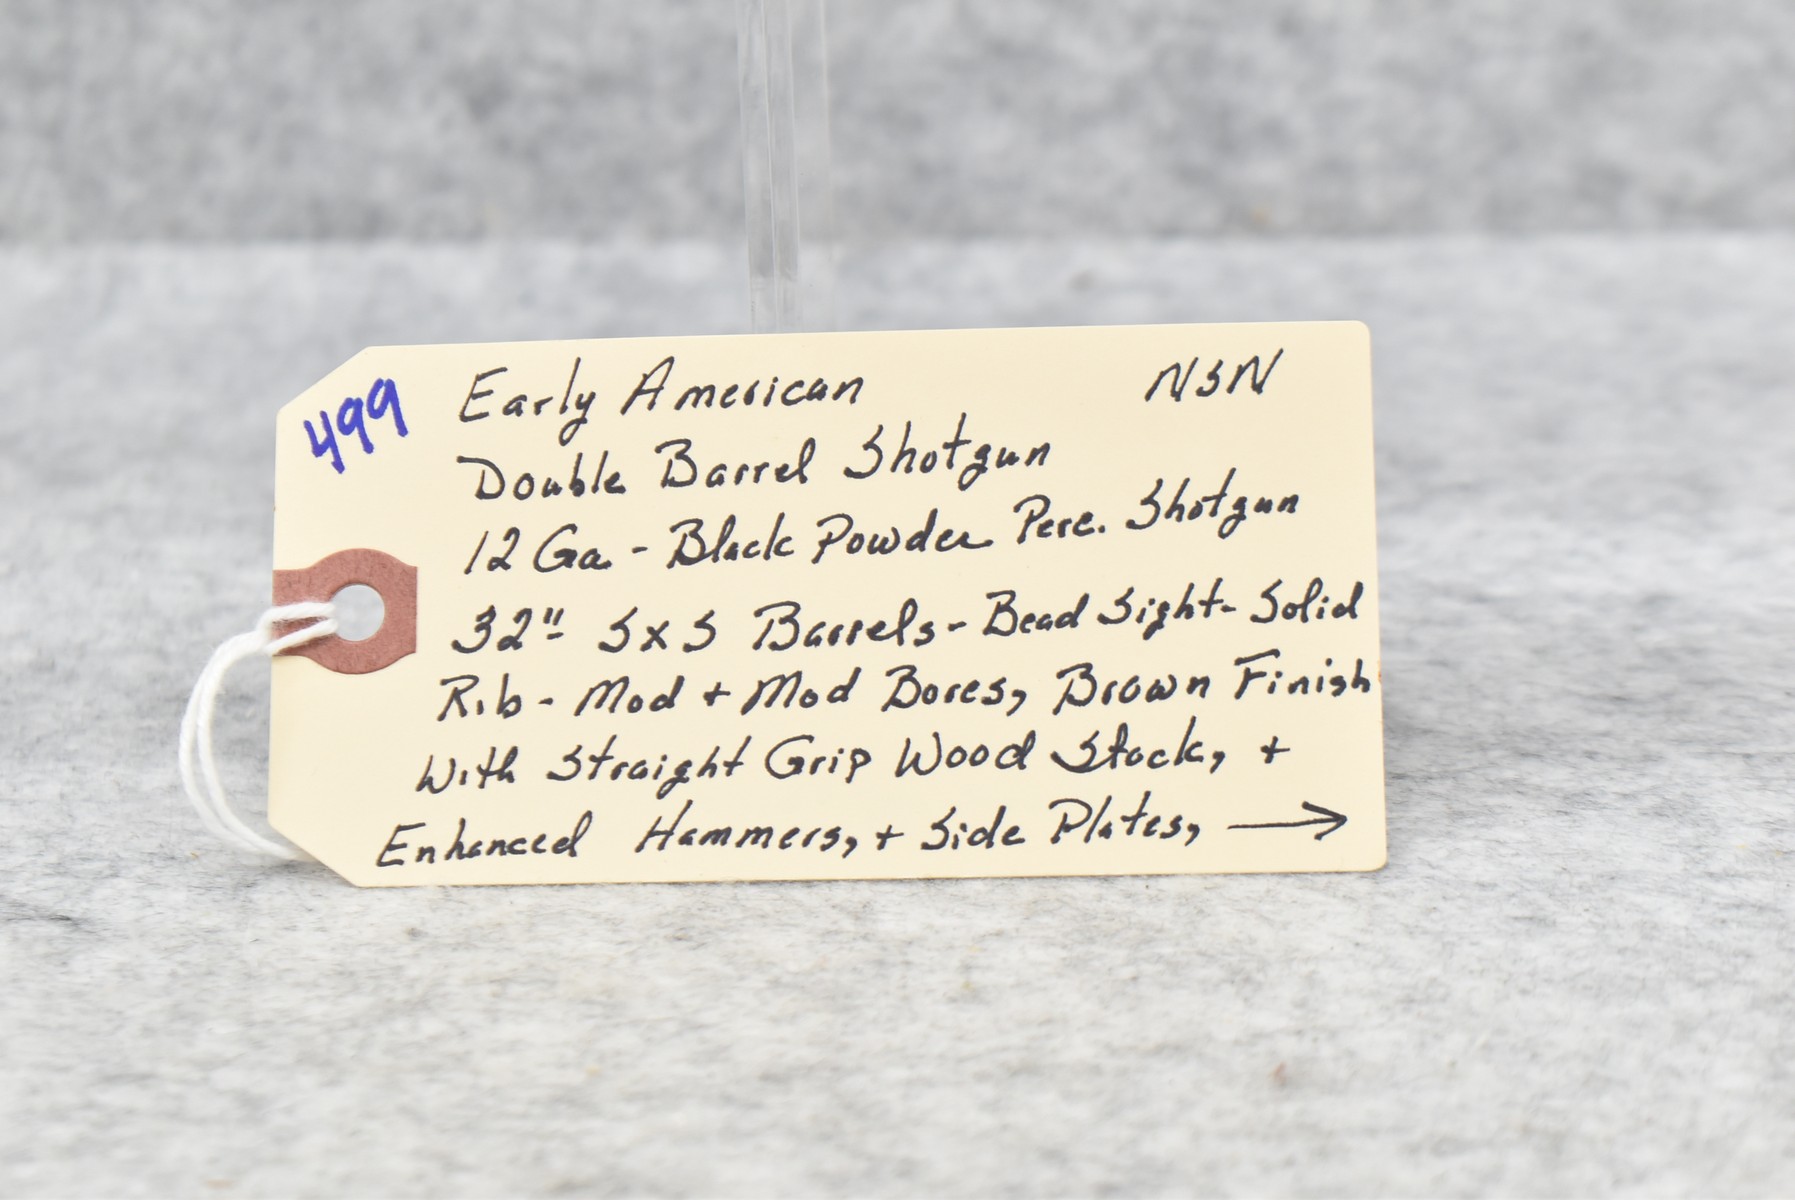 499
Early American NSN
Double Barrel Shotgun
12 Ga - Black Powder Perc. Shotgun
32" SxS Barrels - Bead Sight - Solid
Rib - Mod + Mod Bores, Brown Finish
With Straight Grip Wood Stock, +
Enhanced Hammers, + Side Plates, →